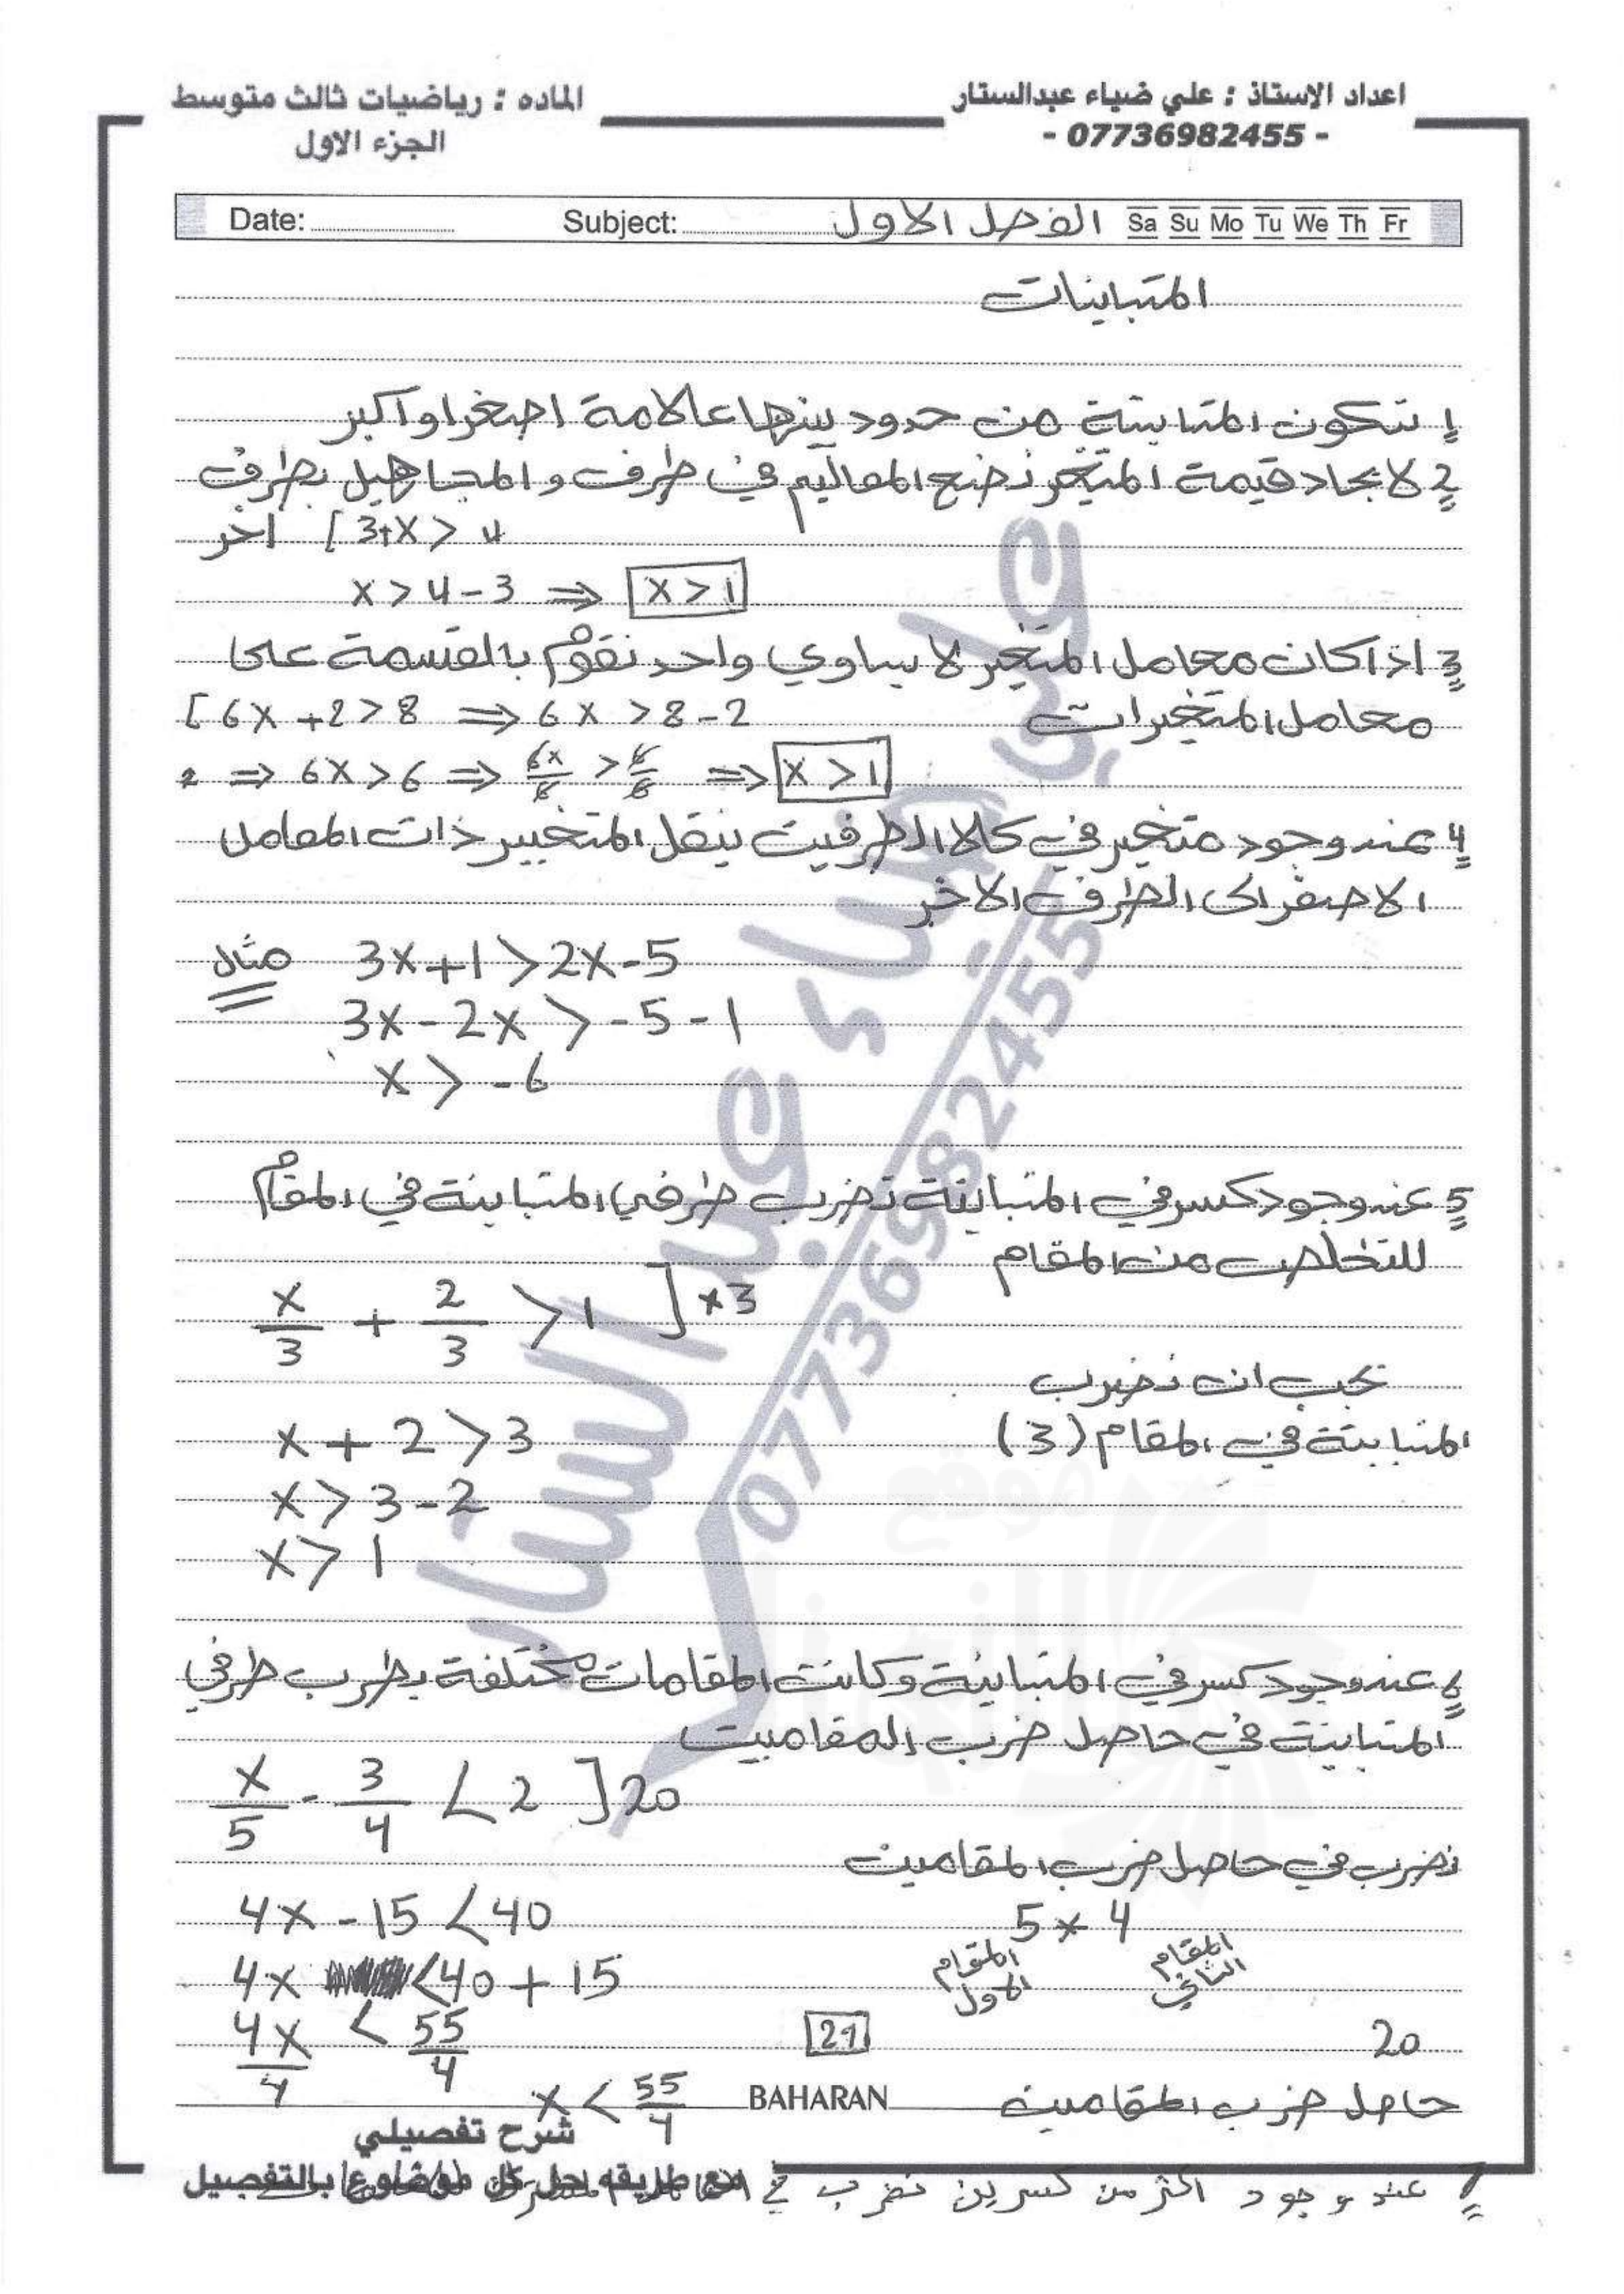 اعداد الاستاذ : علي ضياء عبدالستار
- 07736982455 -
الماده : رياضيات ثالث متوسط
الجزء الاول
Date: Subject: الفصل الاول Sa Su Mo Tu We Th Fr
المتباينات
1 تتكون المتباينة من حدود بينها علامة اصغر او اكبر
2 لايجاد قيمة المتغير نضع المعاليم في طرف والمجاهيل بطرف
اخر [ 3+x > 4
x > 4 - 3 ⇒ x > 1
3 اذا كان معامل المتغير لا يساوي واحد نقوم بالقسمة على
معامل المتغيرات [ 6x + 2 > 8 ⇒ 6x > 8 - 2
⇒ 6x > 6 ⇒ 6x/6 > 6/6 ⇒ x > 1
4 عند وجود متغير في كلا الطرفين ينقل المتغيير ذات المعامل
الاصغر الى الطرف الاخر
مثال 3x + 1 > 2x - 5
3x - 2x > -5 - 1
x > -6
5 عند وجود كسر في المتباينة نضرب طرفي المتباينة في المقام
للتخلص من المقام
x/3 + 2/3 > 1 ] × 3
يجب ان نضرب
المتباينة في المقام (3)
x + 2 > 3
x > 3 - 2
x > 1
6 عند وجود كسر في المتباينة وكانت المقامات مختلفة يضرب طرفي
المتباينة في حاصل ضرب المقامين
x/5 - 3/4 < 2 ] 20
نضرب في حاصل ضرب المقامين
4x - 15 < 40
5 × 4
4x < 40 + 15
المقام الاول
المقام الثاني
4x/4 < 55/4
21
20
x < 55/4
BAHARAN
حاصل ضرب المقامين
شرح تفصيلي
مع طريقه حل كل موضوع بالتفصيل
عند وجود اكثر من كسرين نضرب في
علي ضياء عبد الستار
07736982455
موقع